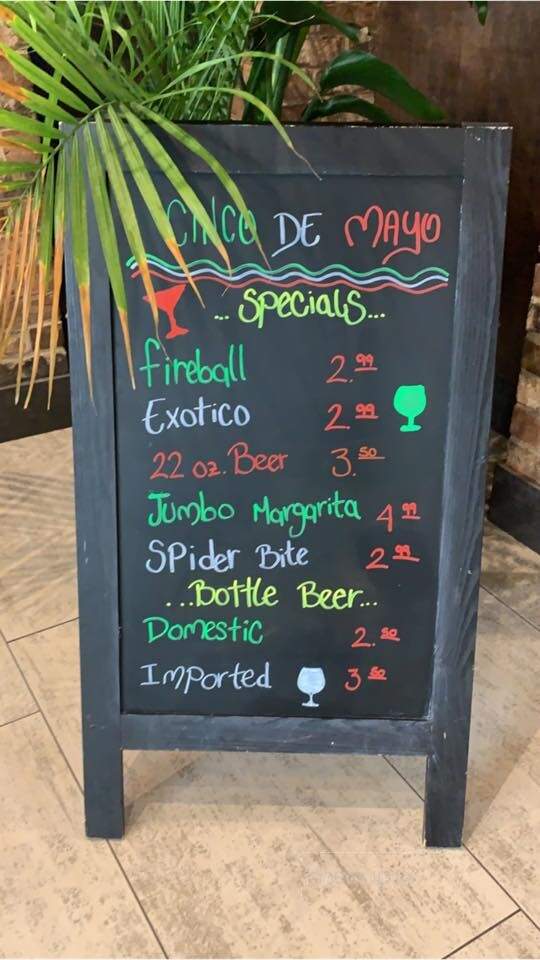 CINCO DE MAYO
... Specials...
fireball 2.99
Exotico 2.99
22 oz. Beer 3.50
Jumbo Margarita 4 99
SPider Bite 2 99
...Bottle Beer...
Domestic 2.50
Imported 3 50